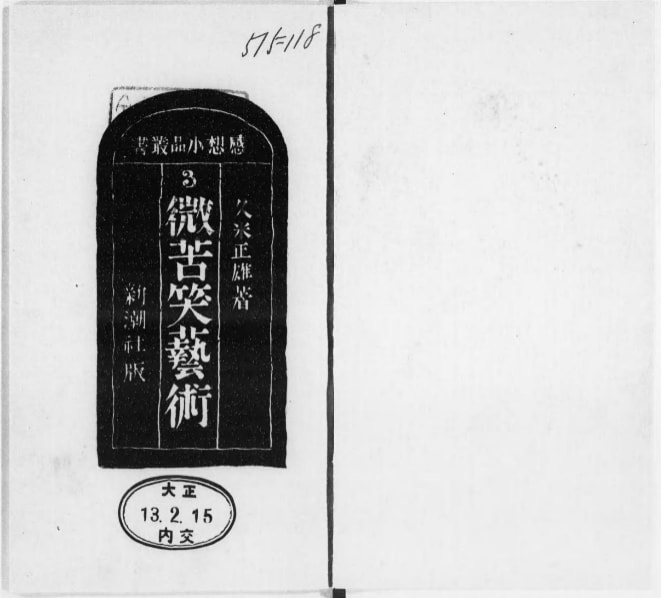 575-118
感想小品叢書
3
久米正雄著
微苦笑藝術
新潮社版
大正
13.2.15
内交